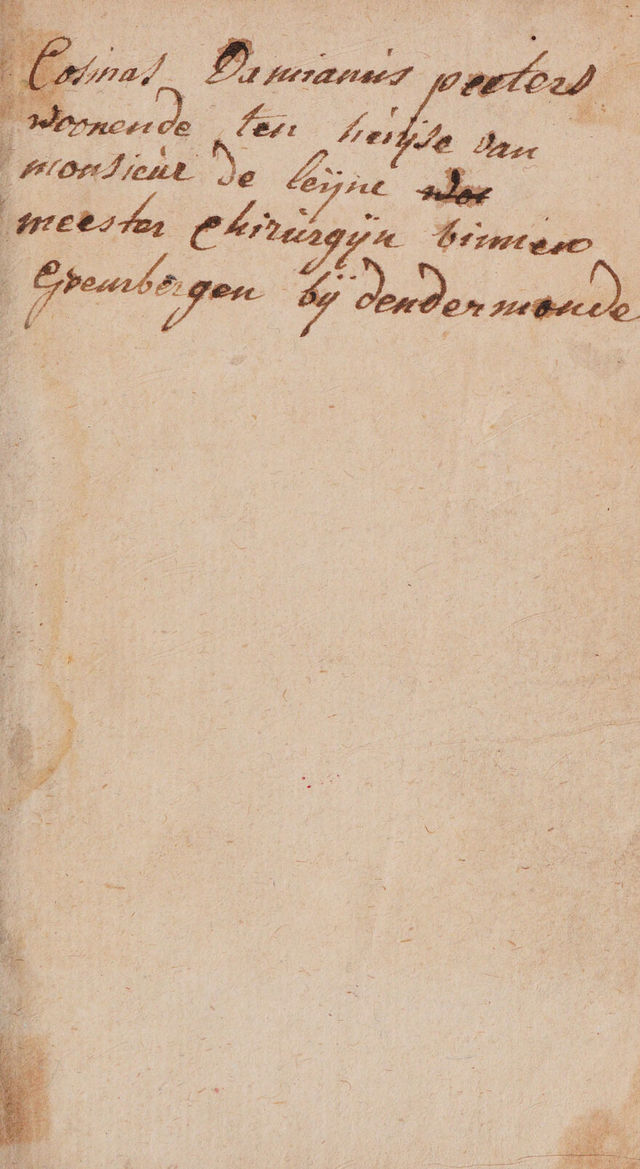 Cosmas Damianus peeters
woonende ten huijse van
monsieur de leijne
meester Chirurgijn binnen
Grembergen bij dendermonde